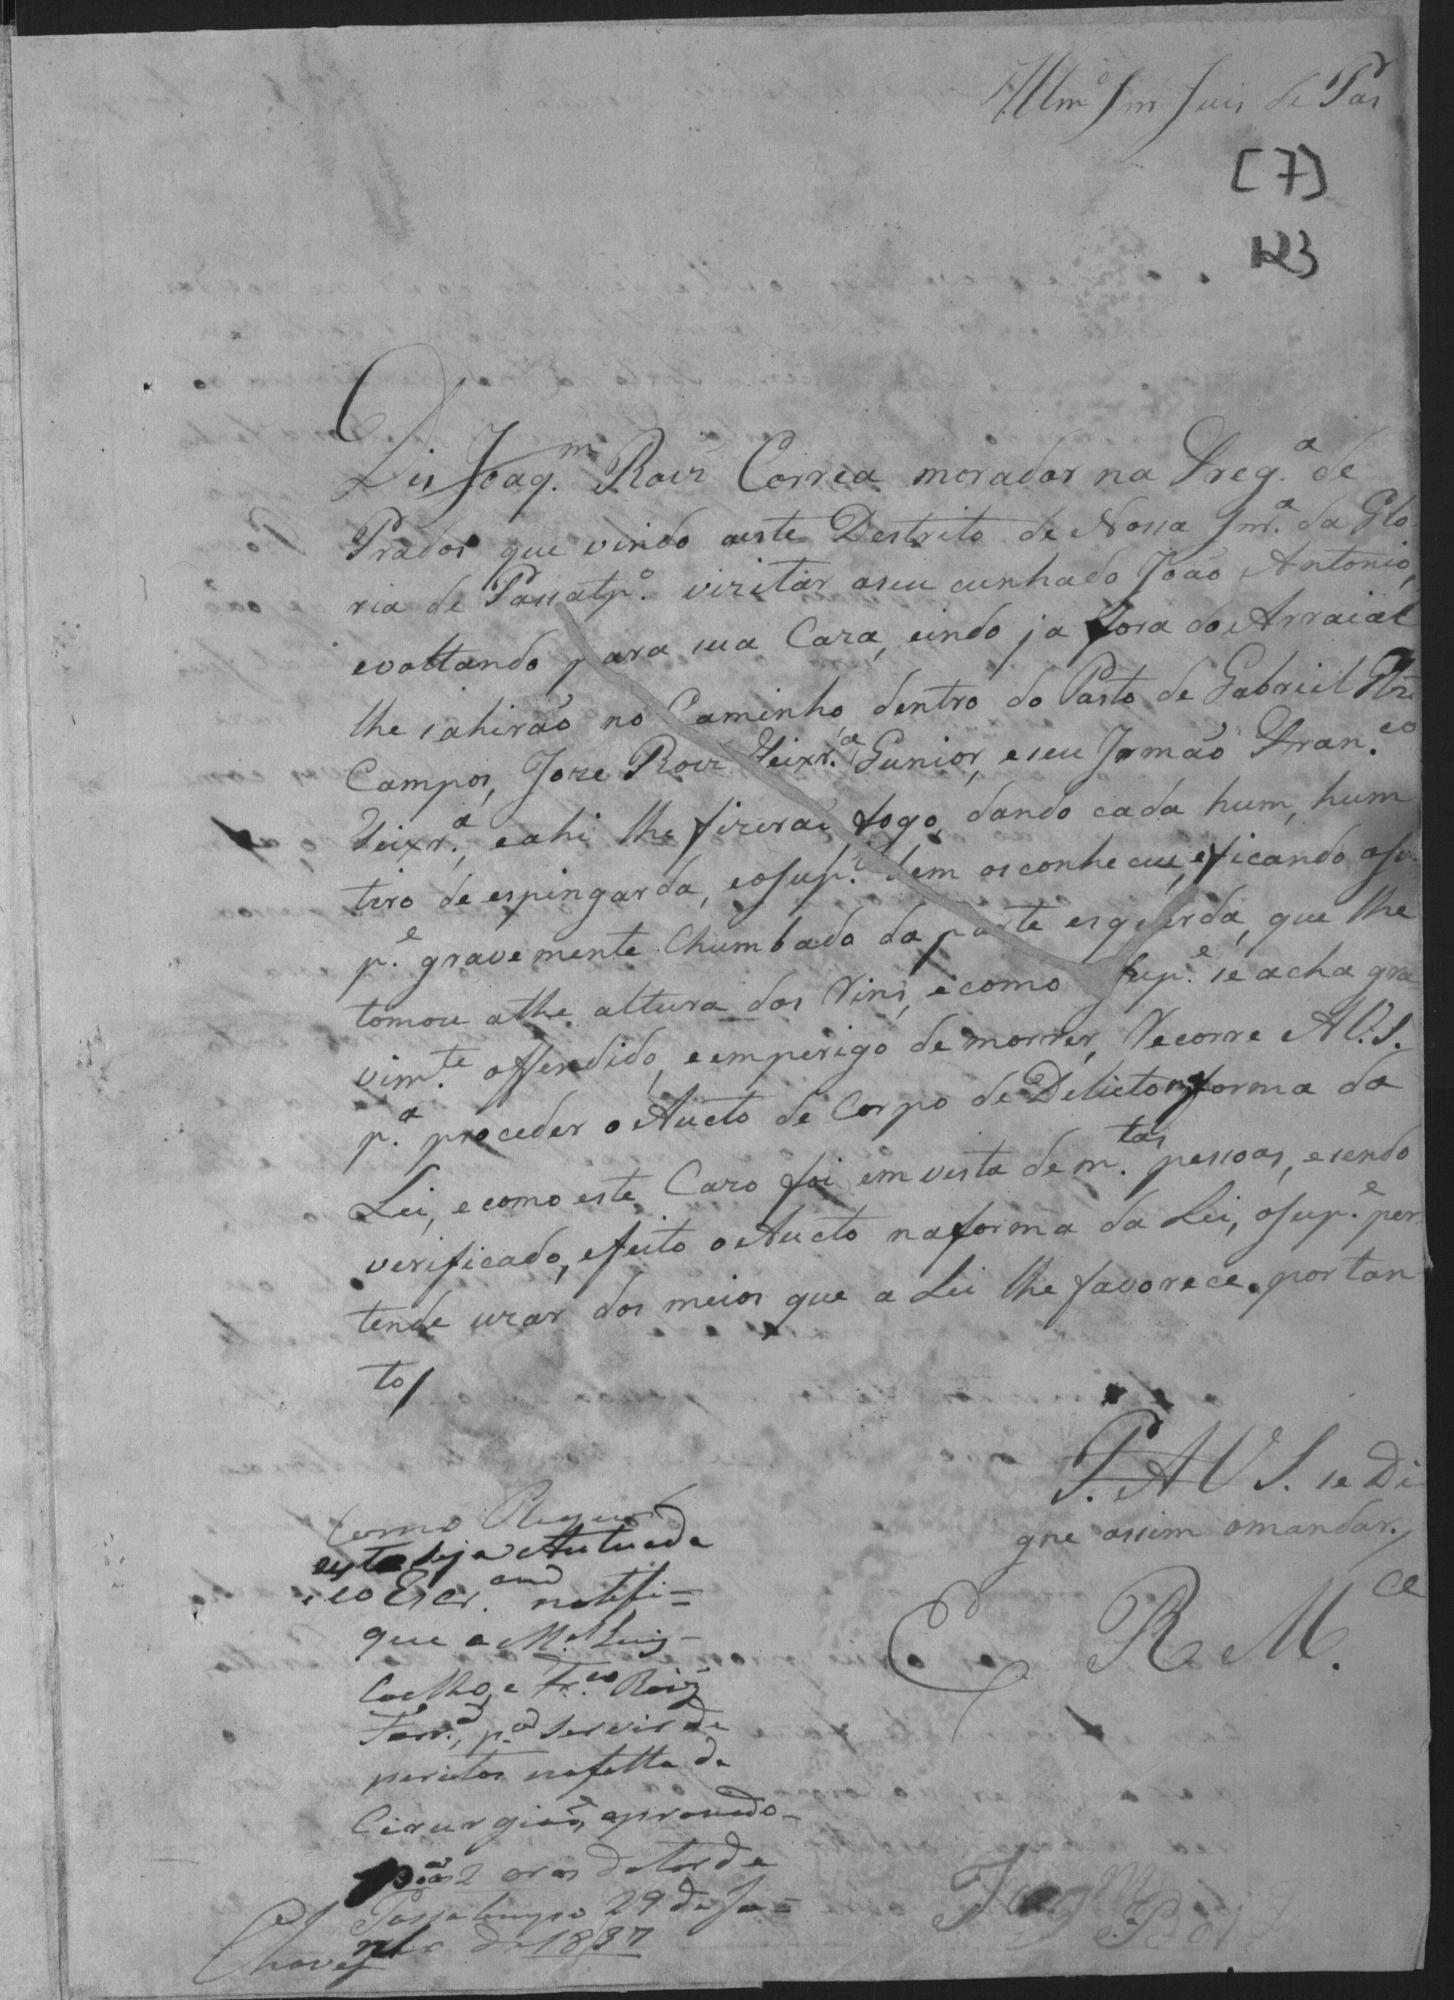 Illmº Snr Juis de Pas
[7]
123
Dis Joaqm. Roiz Correa morador na Freg.ª de
Prados que vindo aeste Destrito de Nossa Snr.ª da Glo
ria de Passatp.º vizitar aseu cunhado João Antonio,
evoltando para sua Caza, eindo ja fora do Arraial
lhe sahirão no Caminho, dentro do Pasto de Gabriel
Campos, Joze Roiz Teixr.ª Junior, eseu Irmão Fran.co
Teixr.ª, eahi lhe fizerão fogo, dando cada hum, hum
tiro de espingarda, eosup.e bem osconheceu, eficando osu
p.e gravemente Chumbado da parte esquerda, que lhe
tomou athe altura dos Rins, ecomo Sup.e se acha gra
vem.te offendido, eemperigo demorrer, Recorre AV.S.
p.ª proceder oAucto de Corpo de Delicto naforma da
Lei, ecomo este Cazo foi em vista dem.tas pessoas, esendo
verificado, efeito oAucto naforma da Lei, osup.e per
tende uzar dos meios que a Lei lhe favorece. portan
to/
P. A V S. se Di
gne assim omandar.
E R M.ce
Como Requer
esta seja Autuada
eo Escr.am notifi=
que a M.el Luis
Coelho, e Fr.co Roiz
Ferr.ª, p.ª servir de
peritos nafalta de
Cirurgião, aprovado
p.ª as 2 oras da tarde
Passatempo 29 de Ja=
nro de 1837
Chaves
Joaqm Roiz